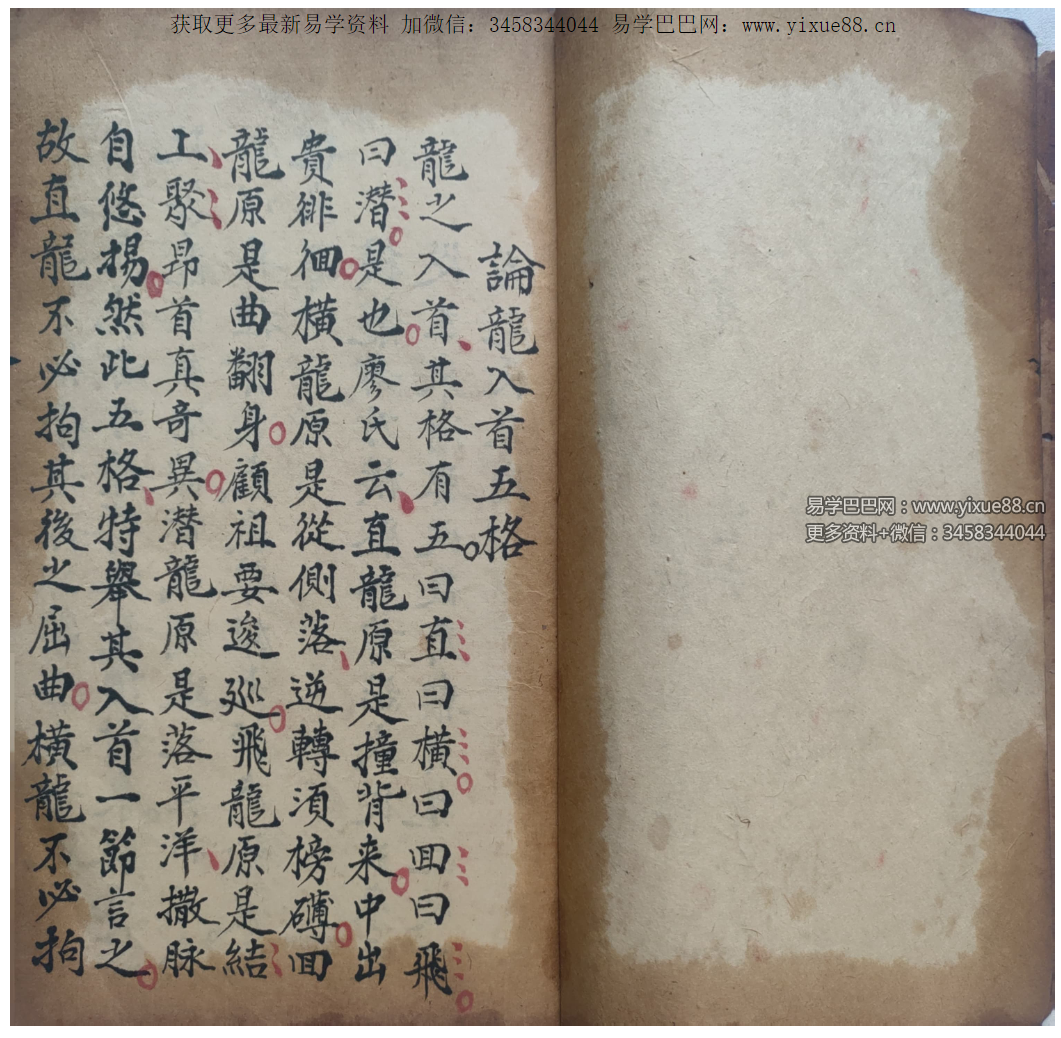 获取更多最新易学资料 加微信：3458344044 易学巴巴网：www.yixue88.cn
論龍入首五格
龍之入首其格有五曰直曰橫曰回曰飛
曰潛是也廖氏云直龍原是撞背来中出
貴徘徊橫龍原是從側落逆轉湏榜礴回
龍原是曲翻身顧祖要逡廵飛龍原是結
工聚昂首真奇異潜龍原是落平洋撒脉
自悠揚然此五格特舉其入首一節言之
故直龍不必拘其後之屈曲橫龍不必拘
易学巴巴网：www.yixue88.cn
更多资料+微信：3458344044